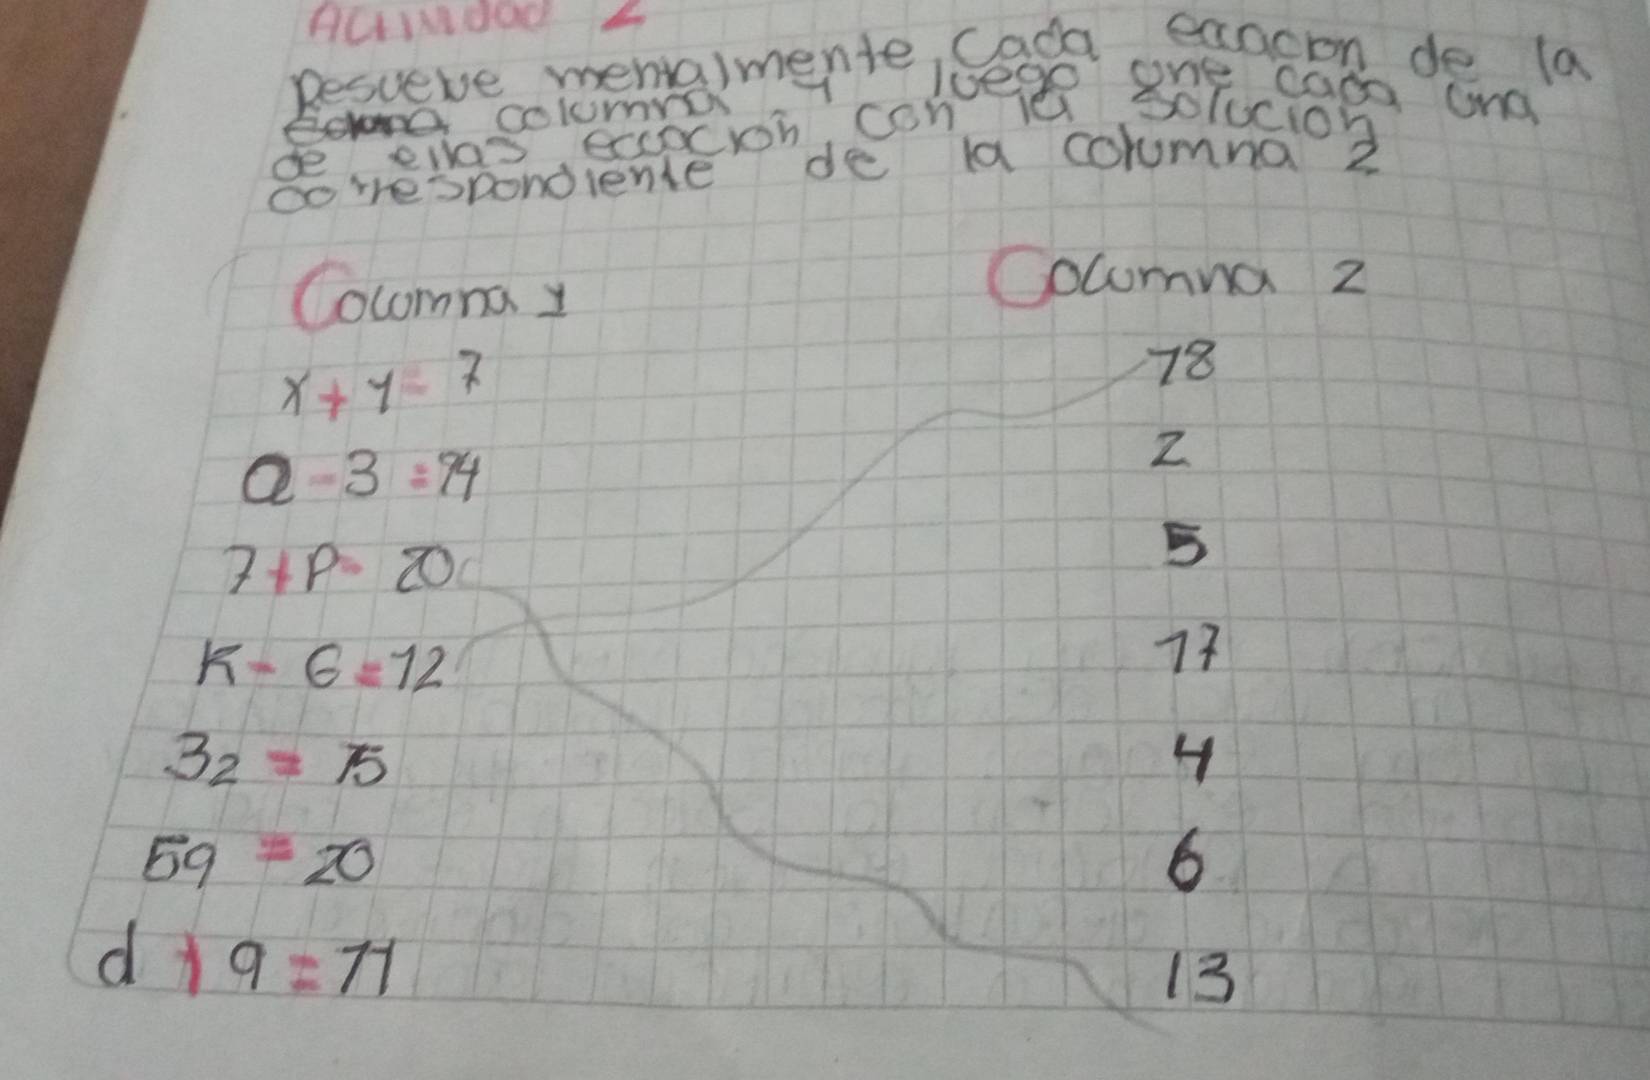 Actividad 2
Desuelve mentalmente, cada ecuacion de la
columna y luego one cada una
de ellas ecuacion con la solucion
correspondiente de la columna 2
Columna 1
Columna 2
x + y = 7
18
a - 3 = 14
2
7 + p = 20
5
K - 6 = 12
17
3z = 15
4
5q = 20
6
d + 9 = 11
13